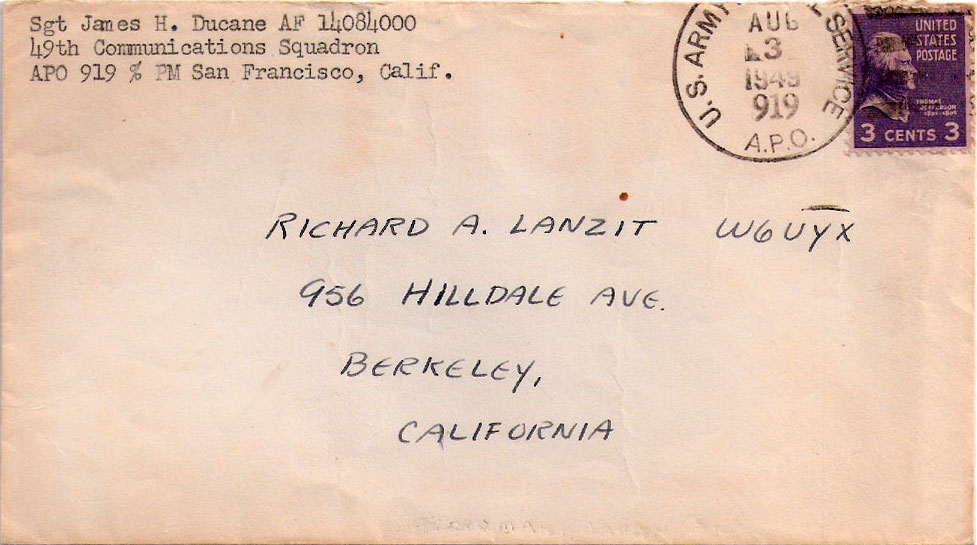 Sgt James H. Ducane AF 14084000
49th Communications Squadron
APO 919 % PM San Francisco, Calif.
U.S. ARMY SERVICE
AUG
3
1949
919
A.P.O.
UNITED
STATES
POSTAGE
THOMAS
JEFFERSON
3 CENTS 3
RICHARD A. LANZIT W6UYX
956 HILLDALE AVE.
BERKELEY,
CALIFORNIA